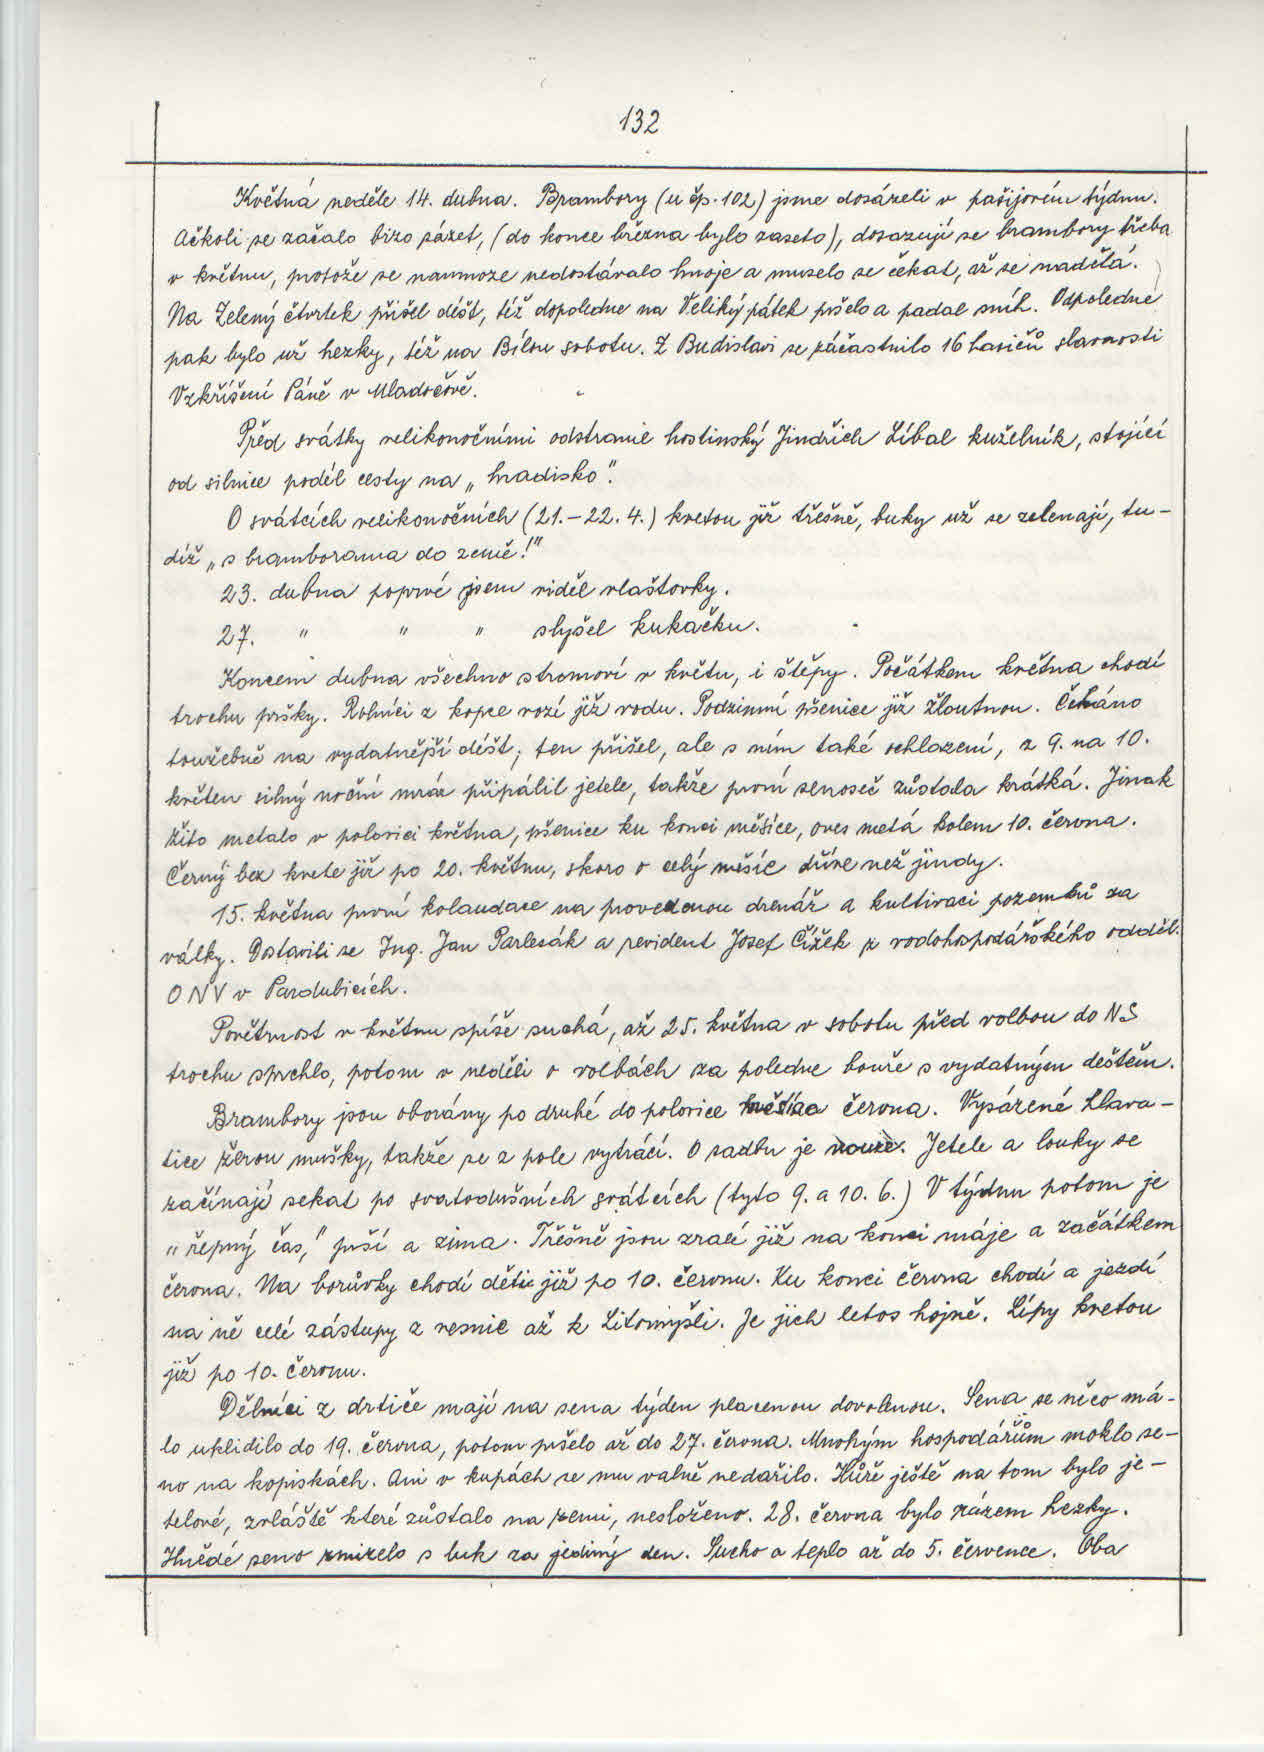 132
Květná neděle 14. dubna. Brambory (u čp. 102) jsme dosázeli v pašijovém týdnu.
Ačkoli se začalo brzo sázet, (do konce března bylo zaseto), dosazují se brambory třeba
v květnu, protože se nanmoze nedostávalo hnoje a muselo se čekat, až se nadělá.
Na Zelený čtvrtek přišel déšť, též dopoledne na Veliký pátek pršelo a padal sníh. Odpoledne
pak bylo už hezky, též na Bílou sobotu. Z Budislavi se záčastnilo 16 hasičů slavnosti
Vzkříšení Páně v Mladočově.
Před svátky velikonočními odstranil hostinský Jindřich Líbal kuželník, stojící
od silnice podél cesty na „hradisko".
O svátcích velikonočních (21.-22.4.) kvetou již třešně, buky už se zelenají, tu-
díž „s bramborama do země!"
23. dubna poprvé jsem viděl vlaštovky.
27. " " " slyšel kukačku.
Koncem dubna všechno stromoví v květu, i štěpy. Počátkem května chodí
trochu pršky. Rolníci z kopce vozí již vodu. Podzimní pšenice již žloutnou. Čekáno
toužebně na vydatnější déšť; ten přišel, ale s ním také ochlazení, z 9. na 10.
květen silný noční mráz připálil jetele, takže první senoseč zůstala krátká. Jinak
žito metalo v polovici května, pšenice ku konci měsíce, oves metá kolem 10. června.
Černý bez kvete již po 20. květnu, skoro o celý měsíc dříve než jindy.
15. května první kolaudace na provedenou drenáž a kultivaci pozemků za
války. Dostavili se Ing. Jan Parlesák a revident Josef Čížek z vodohospodářského odděl.
ONV v Pardubicích.
Povětrnost v květnu spíše suchá, až 25. května v sobotu před volbou do NS
trochu sprchlo, potom v neděli o volbách za poledne bouře s vydatným deštěm.
Brambory jsou oborány po druhé do polovice měsíce června. Vysázené hlava-
tice žerou mušky, takže se z pole vytrácí. O sadbu je nouze. Jetele a louky se
začínají sekat po svatodušních svátcích (tyto 9. a 10. 6.) V týdnu potom je
„řepný čas," prší a zima. Třešně jsou zralé již na konci máje a začátkem
června. Na borůvky chodí děti již po 10. červnu. Ku konci června chodí a jezdí
na ně celé zástupy z vesnic až k Litomyšli. Je jich letos hojně. Lípy kvetou
již po 10. červnu.
Dělníci z drtiče mají na sena týden placenou dovolenou. Sena se něco má-
lo uklidilo do 19. června, potom pršelo až do 27. června. Mnohým hospodářům moklo se-
no na kopiskách. Ani v kupách se mu valně nedařilo. Hůře ještě na tom bylo je-
telové, zvláště které zůstalo na zemi, nesloženo. 28. června bylo rázem hezky.
Hnědé seno zmizelo s luk za jediný den. Sucho a teplo až do 5. července. Oba